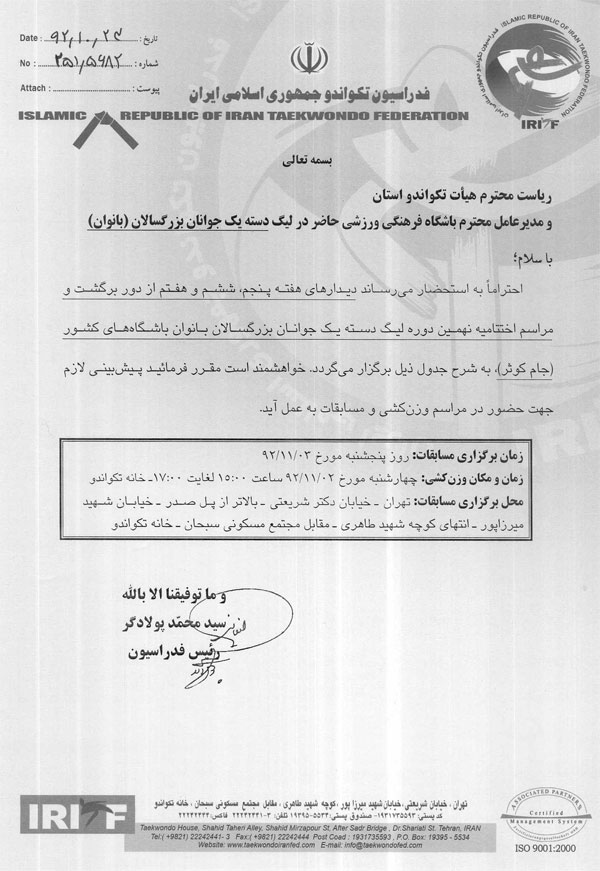 Date : ۹۲،۱۰،۲۴ تاریخ :
No : ۲۵۱،۵۹۸۲ شماره :
Attach : پیوست :
ISLAMIC REPUBLIC OF IRAN TAEKWONDO FEDERATION
فدراسیون تکواندو جمهوری اسلامی ایران
IRITF
فدراسیون تکواندو جمهوری اسلامی ایران
ISLAMIC REPUBLIC OF IRAN TAEKWONDO FEDERATION
بسمه تعالی
ریاست محترم هیأت تکواندو استان
و مدیرعامل محترم باشگاه فرهنگی ورزشی حاضر در لیگ دسته یک جوانان بزرگسالان (بانوان)
با سلام؛
احتراماً به استحضار می‌رساند دیدارهای هفته پنجم، ششم و هفتم از دور برگشت و
مراسم اختتامیه نهمین دوره لیگ دسته یک جوانان بزرگسالان بانوان باشگاه‌های کشور
(جام کوثر)، به شرح جدول ذیل برگزار می‌گردد. خواهشمند است مقرر فرمائید پیش‌بینی لازم
جهت حضور در مراسم وزن‌کشی و مسابقات به عمل آید.
زمان برگزاری مسابقات: روز پنجشنبه مورخ ۹۲/۱۱/۰۳
زمان و مکان وزن‌کشی: چهارشنبه مورخ ۹۲/۱۱/۰۲ ساعت ۱۵:۰۰ لغایت ۱۷:۰۰- خانه تکواندو
محل برگزاری مسابقات: تهران - خیابان دکتر شریعتی - بالاتر از پل صدر - خیابان شهید
میرزاپور - انتهای کوچه شهید طاهری - مقابل مجتمع مسکونی سبحان - خانه تکواندو
و ما توفیقنا الا بالله
سید محمّد پولادگر
رئیس فدراسیون
IRITF
تهران، خیابان شریعتی، خیابان شهید میرزا پور، کوچه شهید طاهری، مقابل مجتمع مسکونی سبحان، خانه تکواندو
کد پستی: ۱۹۳۱۷۳۵۵۹۳- صندوق پستی: ۵۵۳۴-۱۹۳۹۵ تلفن: ۳-۲۲۲۴۲۴۴۱ فاکس: ۲۲۲۴۲۴۴۴
Taekwondo House, Shahid Taheri Alley, Shahid Mirzapour St. After Sadr Bridge , Dr.Shariati St. Tehran, IRAN
Tel:( +9821) 22242441- 3 Fax:( +9821) 22242444 Post Coad : 1931735593 , P.O. Box: 19395 - 5534
Website: www.taekwondoiranfed.com E-mail: info@taekwondofed.com
ASSOCIATED PARTNER
Certified
Management System
ISO 9001:2000